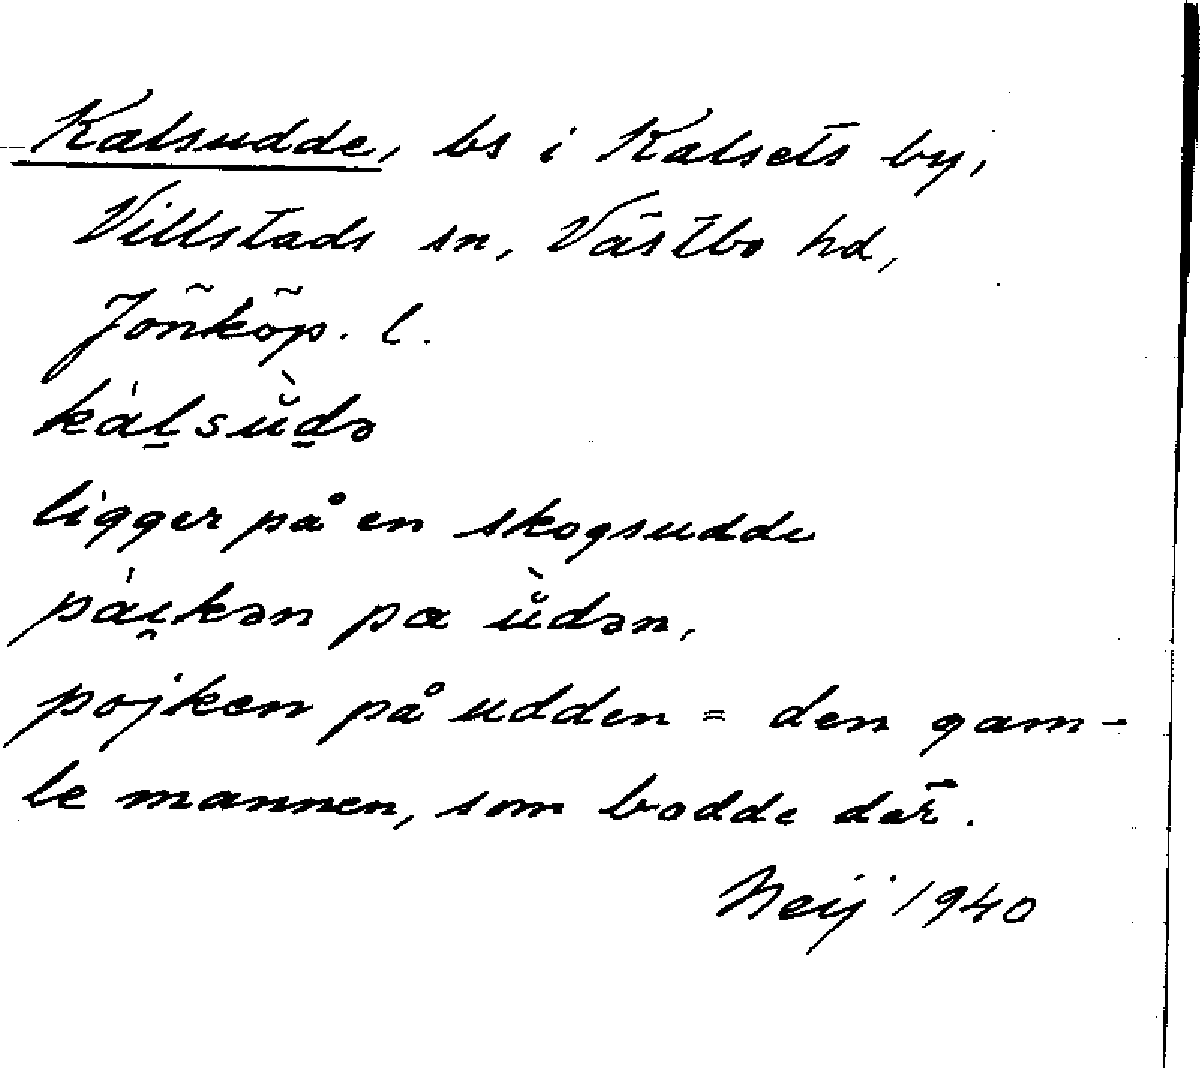 Kalsudde, bs i Kalsets by,
Villstads sn, Västbo hd,
Jönköp. l.
ká̱lsŭ̀ḏə
ligger på en skogsudde
pái̯kən pa ŭ̀dən,
pojken på udden = den gam-
le mannen, som bodde där.
Neij 1940